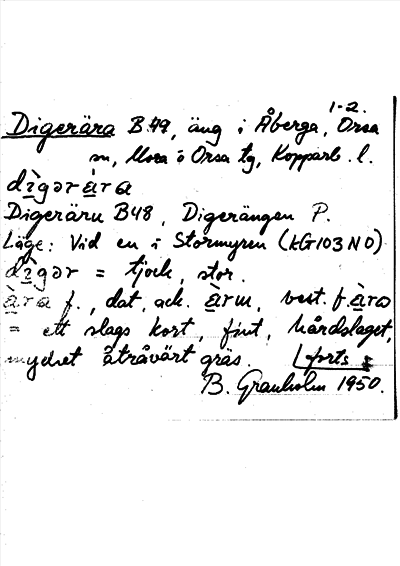 1-2.
Digerära B.49, äng i Åberga, Orsa
sn, Mora o Orsa tg, Kopparb. l.
dìgəràra
Digeräru B48, Digerängen P.
Läge: Vid en i Stormyren (kG103 NO)
dìgər = tjock, stor.
àra f., dat., ack. àrυ, best. f. àrω
= ett slags kort, fint, hårdslaget,
mycket åtråvärt gräs. forts
B. Granholm 1950.